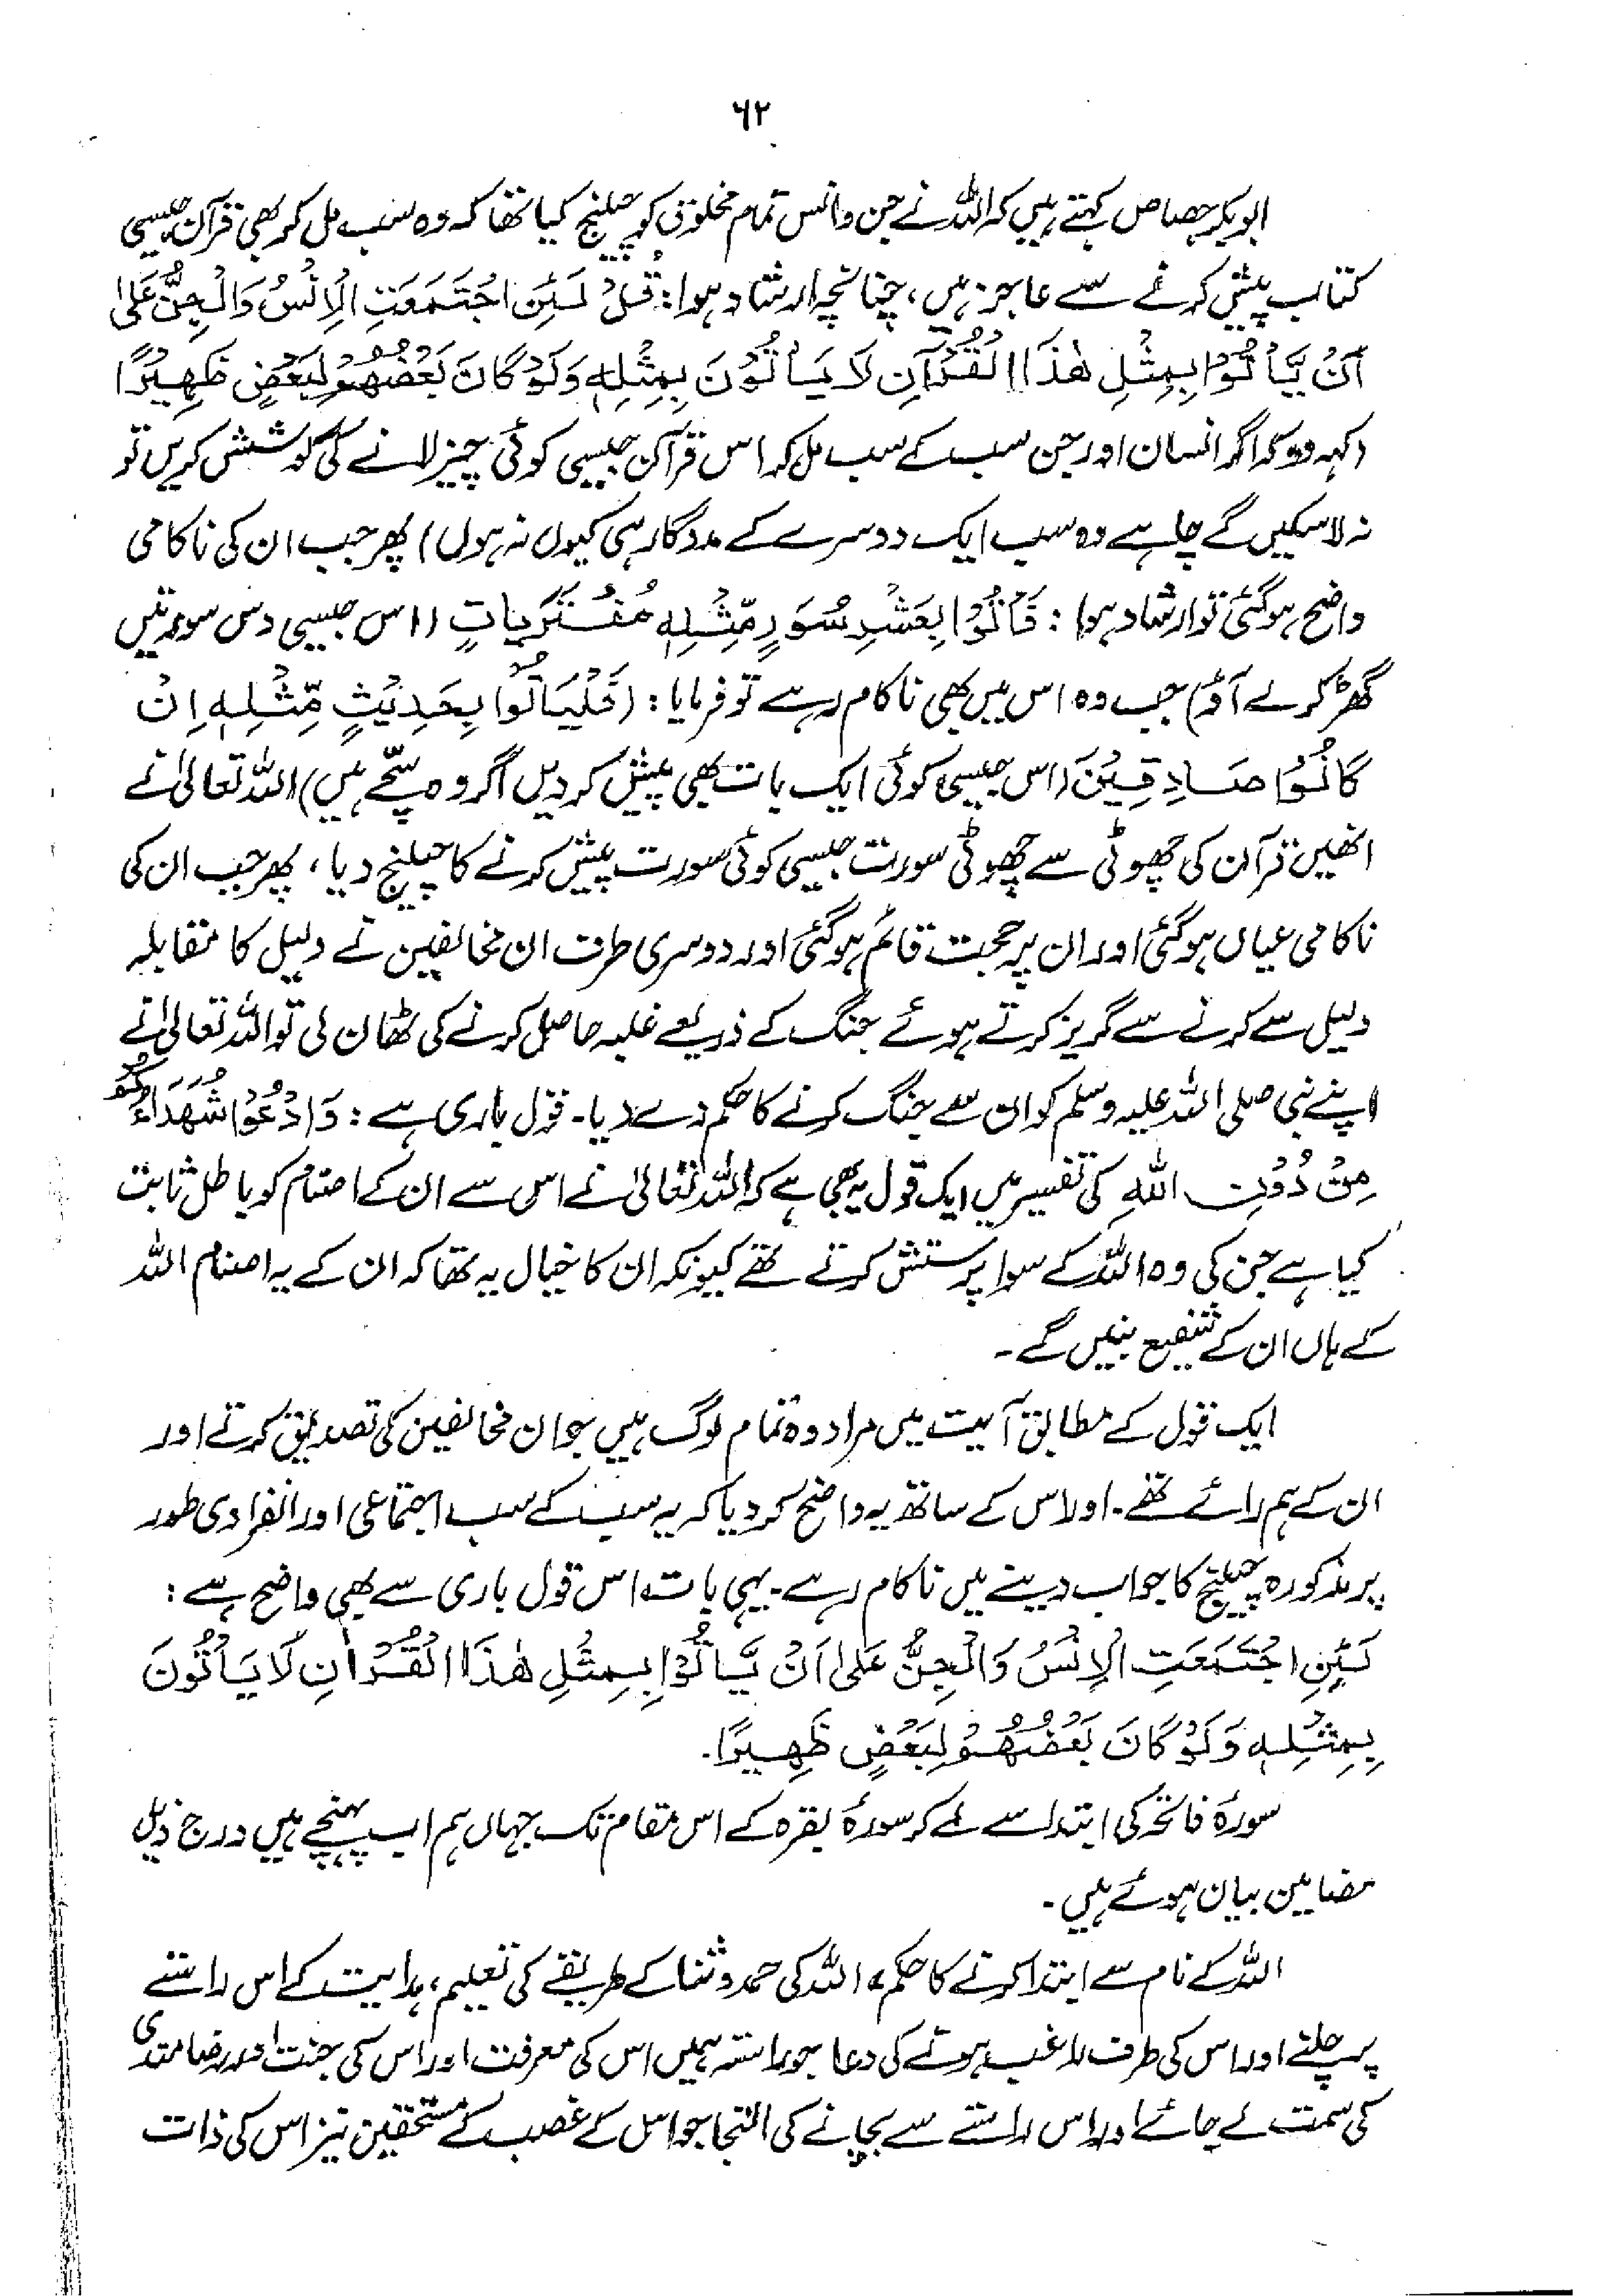 ۶۲
ابوبکر جصاص کہتے ہیں کہ اللہ نے جن وانس تمام مخلوق کو چیلنج کیا تھا کہ وہ سب مل کر بھی قرآن جیسی
کتاب پیش کرنے سے عاجز ہیں، چنانچہ ارشاد ہوا: قُلْ لَئِنِ اجْتَمَعَتِ الْاِنْسُ وَالْجِنُّ عَلیٰ
اَنْ یَّاْتُوْا بِمِثْلِ ھٰذَا الْقُرْآنِ لَا یَاْتُوْنَ بِمِثْلِهٖ وَلَوْ کَانَ بَعْضُھُمْ لِبَعْضٍ ظَھِیْرًا
(کہہ دو کہ اگر انسان اور جن سب کے سب مل کر اس قرآن جیسی کوئی چیز لانے کی کوشش کریں تو
نہ لا سکیں گے چاہے وہ سب ایک دوسرے کے مددگار ہی کیوں نہ ہوں) پھر جب ان کی ناکامی
واضح ہو گئی تو ارشاد ہوا: فَأْتُوْا بِعَشْرِ سُوَرٍ مِّثْلِهٖ مُفْتَرَیَاتٍ (اس جیسی دس سورتیں
گھڑ کر لے آؤ) جب وہ اس میں بھی ناکام رہے تو فرمایا: (فَلْیَاْتُوْا بِحَدِیْثٍ مِّثْلِهٖ اِنْ
کَانُوْا صَادِقِیْنَ (اس جیسی کوئی ایک بات بھی پیش کر دیں اگر وہ سچّے ہیں) اللہ تعالیٰ نے
انھیں قرآن کی چھوٹی سے چھوٹی سورت جیسی کوئی سورت پیش کرنے کا چیلنج دیا، پھر جب ان کی
ناکامی عیاں ہو گئی اور ان پر حجت قائم ہو گئی اور دوسری طرف ان مخالفین نے دلیل کا مقابلہ
دلیل سے کرنے سے گریز کرتے ہوئے جنگ کے ذریعے غلبہ حاصل کرنے کی ٹھان لی تو اللہ تعالیٰ نے
اپنے نبی صلی اللہ علیہ وسلم کو ان سے جنگ کرنے کا حکم دے دیا۔ قول باری ہے: وَادْعُوْا شُھَدَاءَکُمْ
مِنْ دُوْنِ اللہِ کی تفسیر میں ایک قول یہ بھی ہے کہ اللہ تعالیٰ نے اس سے ان کے اصنام کو باطل ثابت
کیا ہے جن کی وہ اللہ کے سوا پرستش کرتے تھے کیونکہ ان کا خیال یہ تھا کہ ان کے یہ اصنام اللہ
کے ہاں ان کے شفیع بنیں گے۔
ایک قول کے مطابق آیت میں مراد وہ تمام لوگ ہیں جو ان مخالفین کی تصدیق کرتے اور
ان کے ہم رائے تھے۔ اور اس کے ساتھ یہ واضح کر دیا کہ یہ سب کے سب اجتماعی اور انفرادی طور
پر مذکورہ چیلنج کا جواب دینے میں ناکام رہے۔ یہی بات اس قول باری سے بھی واضح ہے:
لَئِنِ اجْتَمَعَتِ الْاِنْسُ وَالْجِنُّ عَلیٰ اَنْ یَّاْتُوْا بِمِثْلِ ھٰذَا الْقُرْاٰنِ لَا یَاْتُوْنَ
بِمِثْلِهٖ وَلَوْ کَانَ بَعْضُھُمْ لِبَعْضٍ ظَھِیْرًا۔
سورۂ فاتحہ کی ابتدا سے لے کر سورۂ بقرہ کے اس مقام تک جہاں ہم اب پہنچے ہیں درج ذیل
مضامین بیان ہوئے ہیں۔
اللہ کے نام سے ابتدا کرنے کا حکم، اللہ کی حمد و ثنا کے طریقے کی تعلیم، ہدایت کے اس راستے
پر چلنے اور اس کی طرف راغب ہونے کی دعا جو راستہ ہمیں اس کی معرفت اور اس کی جنت اور رضامندی
کی سمت لے جائے اور اس راستے سے بچانے کی التجا جو اس کے غضب کے مستحقین نیز اس کی ذات